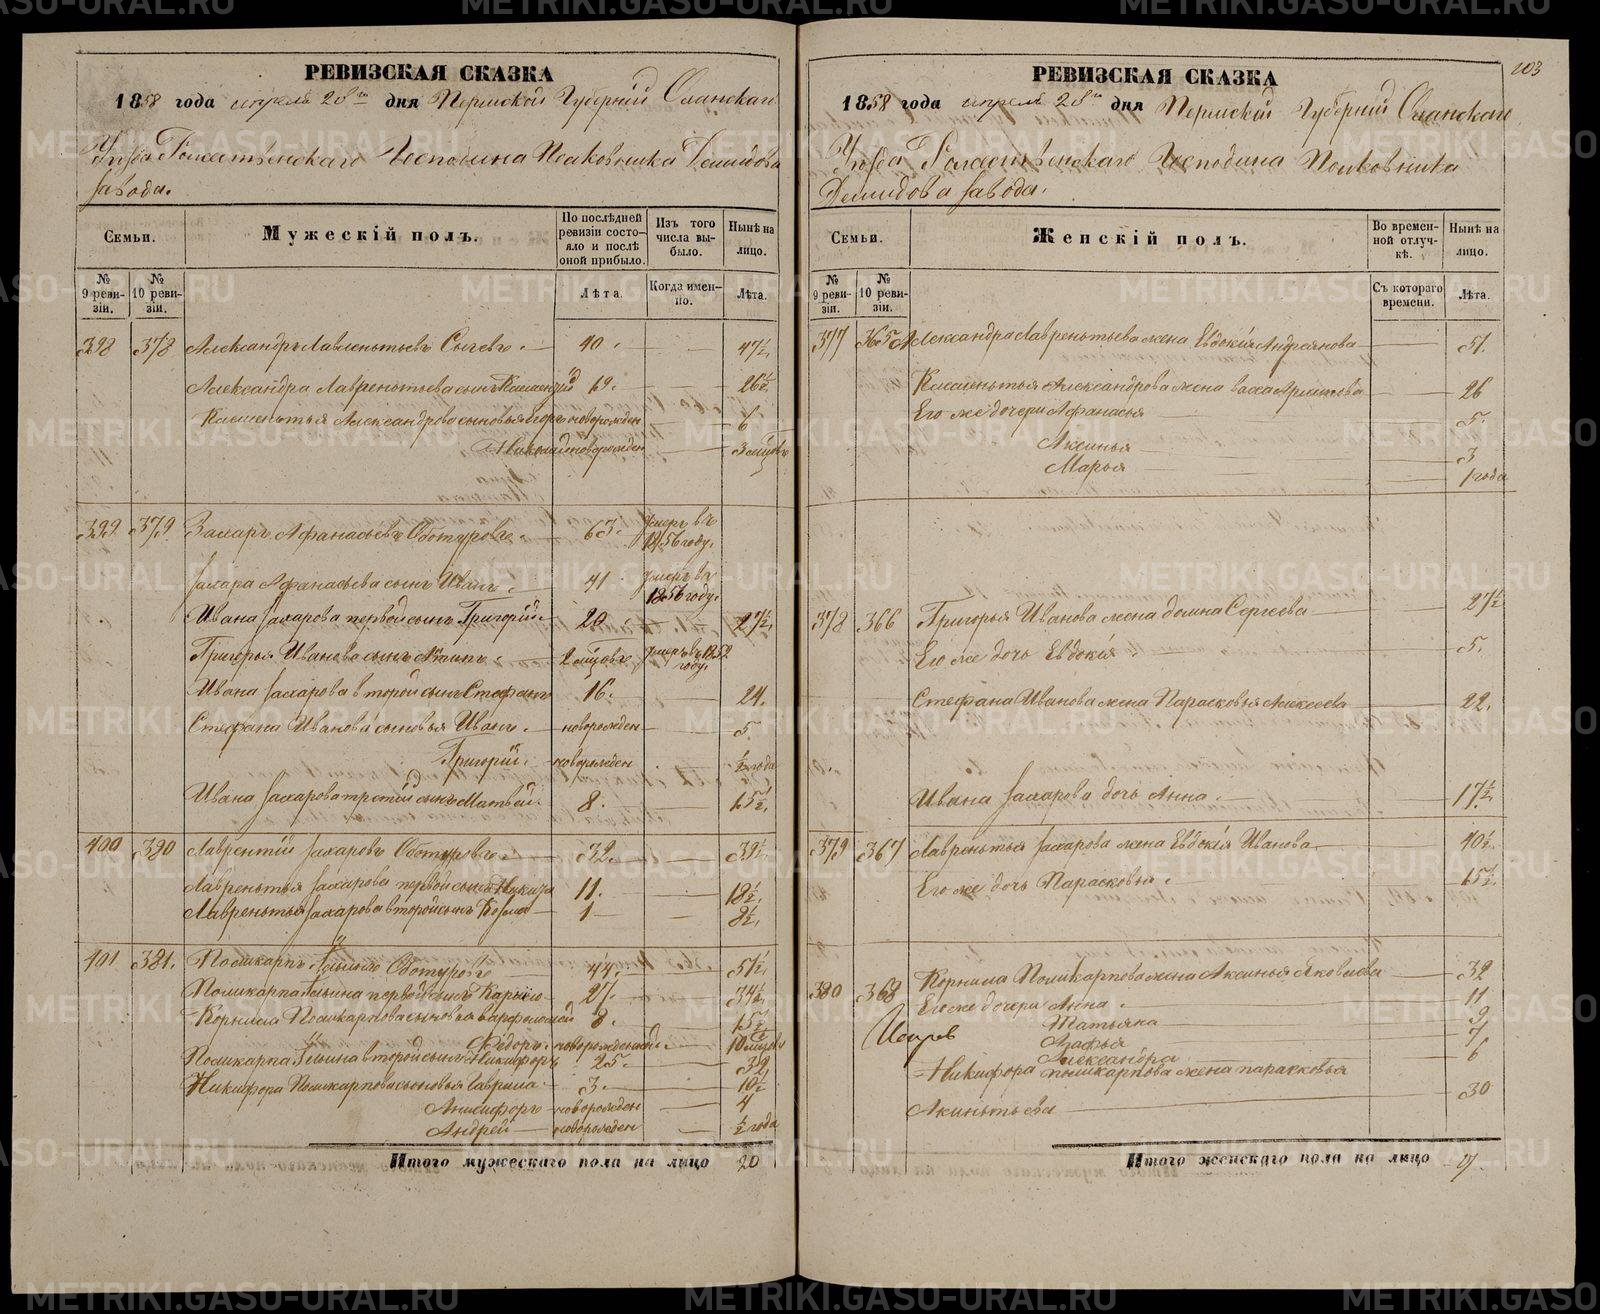 РЕВИЗСКАЯ СКАЗКА
1858 года апреля 28го дня Пермской Губернии Оханскаго
Уезда Рождественскаго Господина Полковника Демидова
завода.
Семьи.
Мужескій полъ.
По послѣдней ревизіи состояло и послѣ оной прибыло.
Изъ того числа выбыло.
Нынѣ на лицо.
№ 9 ревизіи.
№ 10 ревизіи.
Лѣта.
Когда именно.
Лѣта.
398 378 Александръ Лаврентьевъ Сычевъ 40. 47½
Александра Лаврентьева сынъ Климентій 19. 26½
Климентья Александрова сыновья Егоръ новорожден 6
Николай новорожден 3 мцовъ
399 379 Захаръ Афанасьевъ Обоуровъ 63. умеръ въ 1856 году.
Захара Афанасьева сынъ Иванъ 41 умеръ въ 1856 году.
Ивана Захарова первой сынъ Григорий 20 27½
Григорья Иванова сынъ 2 мцовъ умеръ в 1852 году.
Ивана Захарова второй сынъ Стефанъ 16. 24.
Стефана Иванова сыновья Иванъ новорожден 5
Григорий новорожден ½ года
Ивана Захарова третий сынъ Матвей 8. 15½
400 380 Лаврентий Захаровъ 32. 39½
Лаврентья Захарова первой сынъ Никита 11. 18½
Лаврентья Захарова второй сынъ Козма 1 8½
401 381. Поликарпъ Ильинъ 44. 51½
Поликарпа Ильина первой сынъ Корнило 27. 34½
Корнила Поликарпова сыновья Варфоломей 8. 15½
Федоръ новорожденный 10 мцовъ
Поликарпа Ильина второй сынъ Никифоръ 25. 32½
Никифора Поликарпова сыновья Гаврила 3. 10½
Анисифоръ новорожден 4
Андрей новорожден ½ года
Итого мужескаго пола на лицо 20
203
РЕВИЗСКАЯ СКАЗКА
1858 года апреля 28го дня Пермской Губернии Оханскаго
Уезда Рождественскаго Господина Полковника
Демидова завода.
Семьи.
Женскій полъ.
Во временной отлучкѣ.
Нынѣ на лицо.
№ 9 ревизіи.
№ 10 ревизіи.
Съ котораго времени.
Лѣта.
377 365 Александра Лаврентьева жена Евдокия Андреянова 51.
Климентья Александрова жена Васса 26
Его же дочери Афанасья 5.
Аксинья 3
Марья 1 года
378 366 Григорья Иванова жена Домна Сергеева 27½
Его же дочь Евдокия 5.
Стефана Иванова жена Парасковья Алексеева 22.
Ивана Захарова дочь Анна 17½
379 367 Лаврентья Захарова жена Евдокия Иванова 40½
Его же дочь Парасковья 15½
380 368 Корнила Поликарпова жена Аксинья Яковлева 32
Его же дочери Анна 11
Татьяна 9
Агафья 7
Александра 6
Никифора Поликарпова жена Парасковья
Акинтьева 30
Итого женскаго пола на лицо 17
METRIKI.GASO-URAL.RU